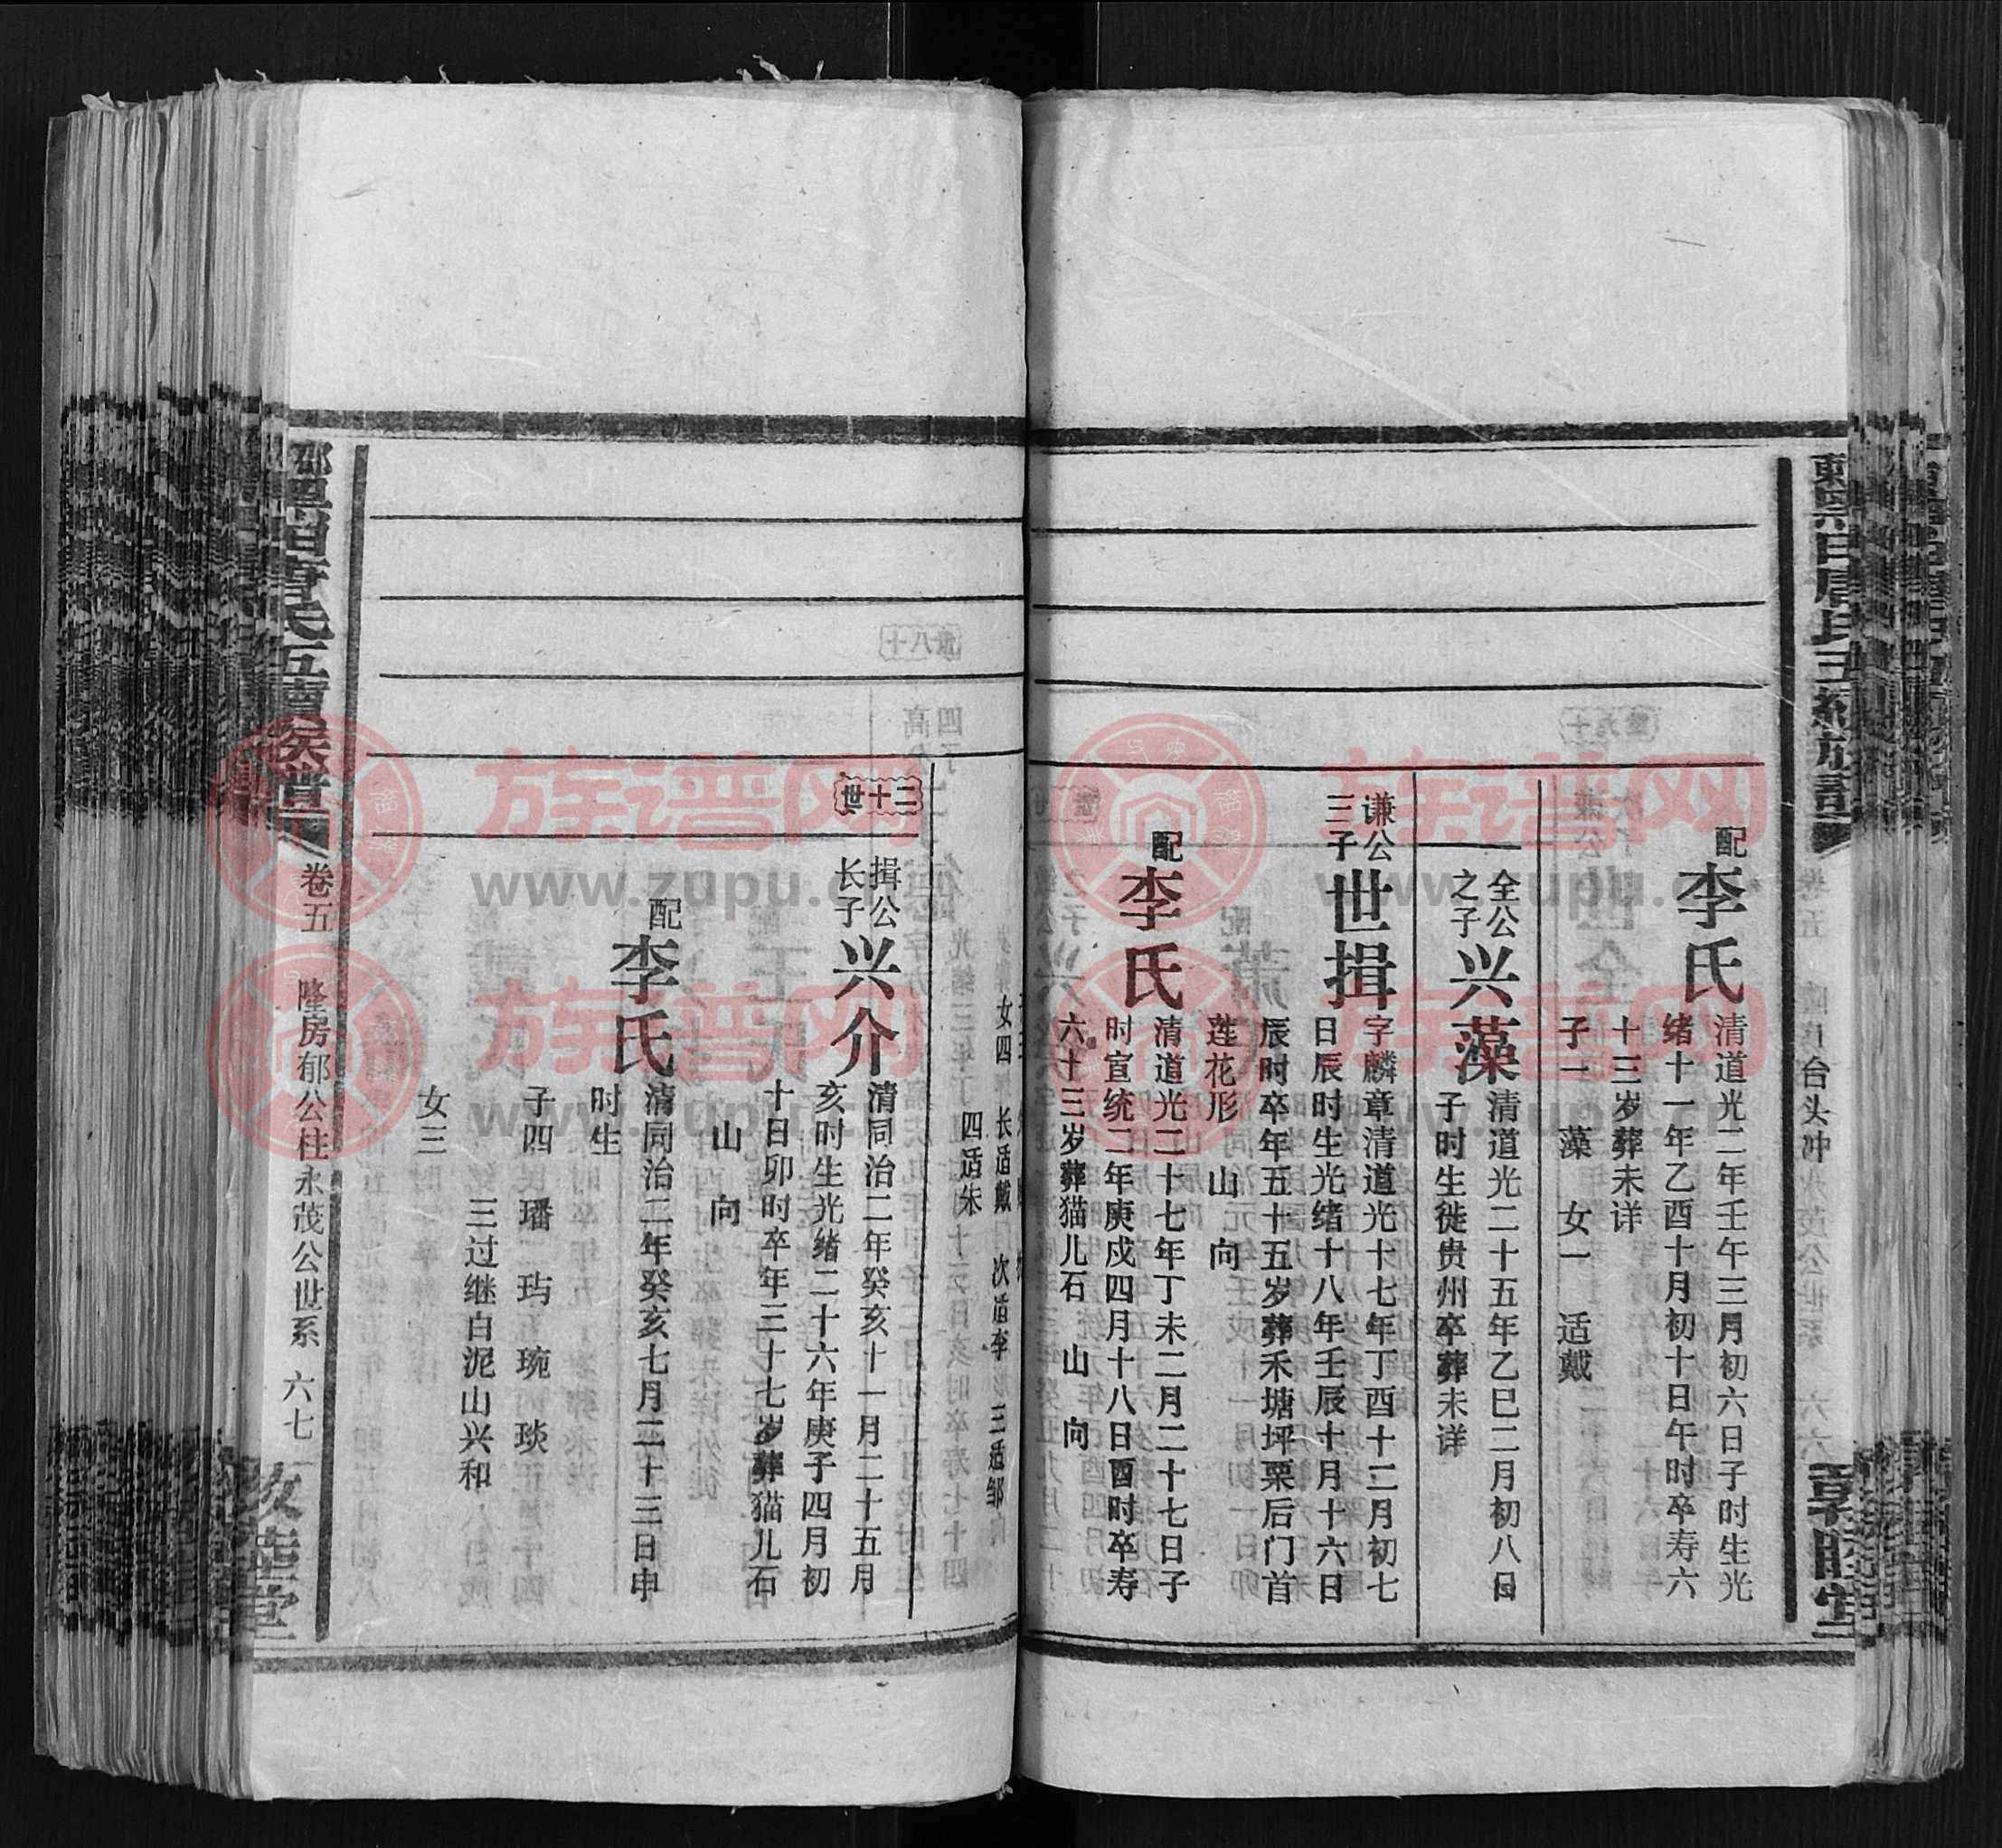 配
李氏
清道光二年壬午三月初六日子时生光
绪十一年乙酉十月初十日午时卒寿六
十三岁葬未详
子一 藻 女一 适戴
全公
之子
兴藻
清道光二十五年乙巳二月初八日
子时生徙贵州卒葬未详
谦公
三子
世揖
字麟章清道光十七年丁酉十二月初七
日辰时生光绪十八年壬辰十月十六日
辰时卒年五十五岁葬禾塘坪栗后门首
莲花形 山 向
配
李氏
清道光二十七年丁未二月二十七日子
时宣统二年庚戌四月十八日酉时卒寿
六十三岁葬猫儿石 山 向
女四 长适戴 次适李 三适邹
四适朱
二十世
揖公
长子
兴介
清同治二年癸亥十一月二十五月
亥时生光绪二十六年庚子四月初
十日卯时卒年三十七岁葬猫儿石
山 向
配
李氏
清同治二年癸亥七月二十三日申
时生
子四 璠 玙 琬 琰
三过继白泥山兴和
女三
卷五 隆房郁公柱永茂公世系 六七
台头冲
族谱网
www.zupu.cn
族谱网
www.zupu.cn
族谱网
www.zupu.cn
族谱网
www.zupu.cn